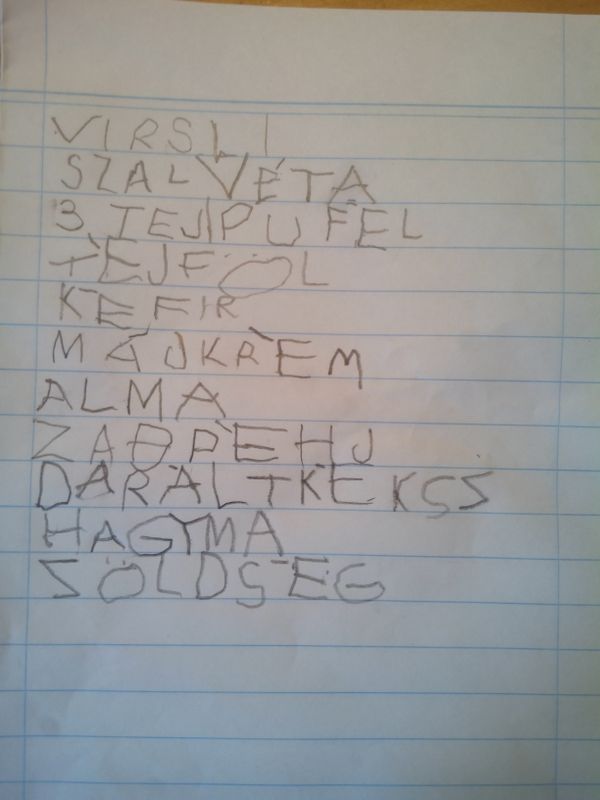 VIRSLI
SZALVÉTA
3 TEJIPUFEL
TEJFÖL
KEFIR
MÁJKRÉM
ALMA
ZABPEHJ
DARÁLTKEKSZ
HAGYMA
ZÖLDSÉG